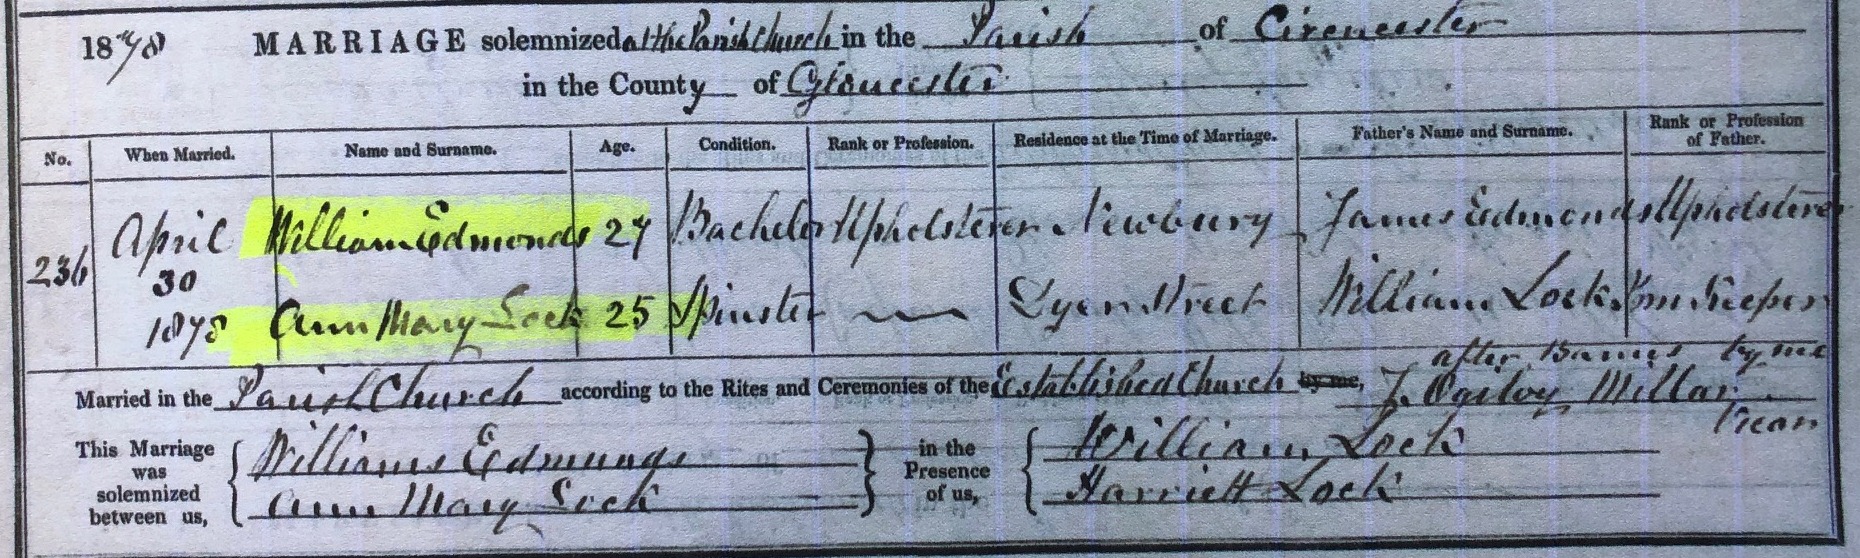 1878 MARRIAGE solemnized at the Parish Church in the Parish of Cirencester
in the County of Gloucester
No. When Married. Name and Surname. Age. Condition. Rank or Profession. Residence at the Time of Marriage. Father's Name and Surname. Rank or Profession of Father.
236 April 30 1878 William Edmonds 27 Bachelor Upholsterer Newbury James Edmonds Upholsterer
Ann Mary Lock 25 Spinster — Dyer Street William Lock Inn Keeper
Married in the Parish Church according to the Rites and Ceremonies of the Established Church by me, after Banns by me
J. Ogilvy Millar Vicar
This Marriage was solemnized between us, William Edmunds in the Presence of us, William Lock
Ann Mary Lock Harriett Lock